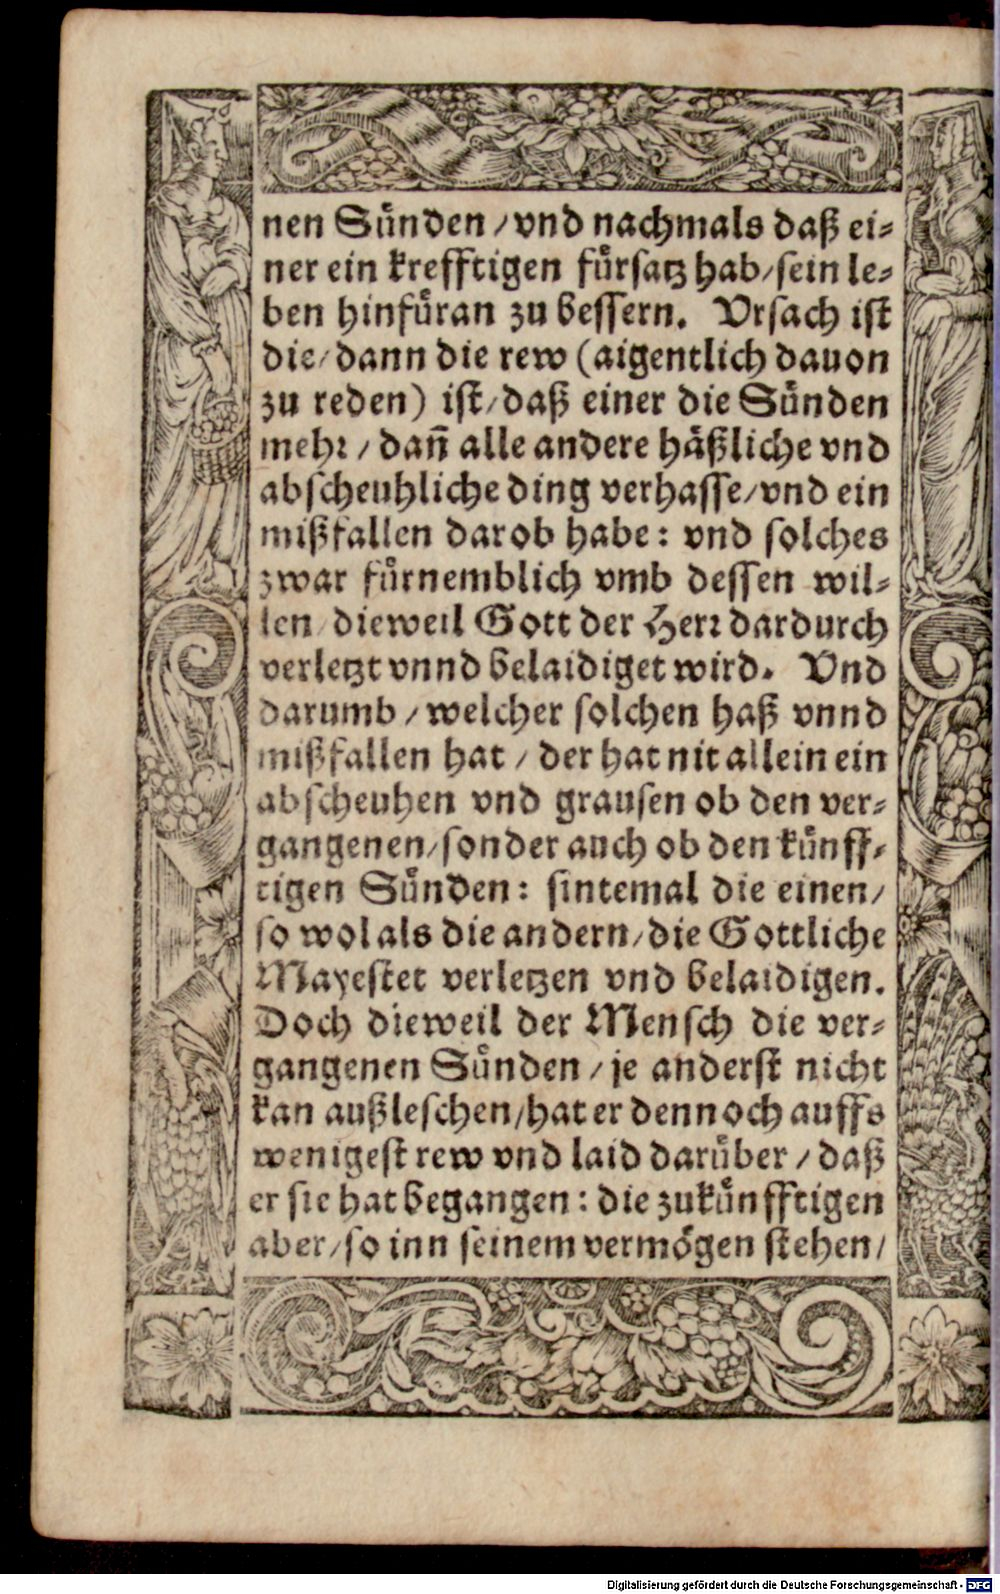 nen Sünden / vnd nachmals daß ei⸗
ner ein krefftigen fürsatz hab / sein le⸗
ben hinfüran zu bessern. Vrsach ist
die / dann die rew (aigentlich dauon
zu reden) ist / daß einer die Sünden
mehr / dañ alle andere häßliche vnd
abscheuhliche ding verhasse / vnd ein
mißfallen darob habe: vnd solches
zwar fürnemblich vmb dessen wil⸗
len / dieweil Gott der Herr dardurch
verletzt vnnd belaidiget wird. Vnd
darumb / welcher solchen haß vnnd
mißfallen hat / der hat nit allein ein
abscheuhen vnd grausen ob den ver⸗
gangenen / sonder auch ob den künff⸗
tigen Sünden: sintemal die einen /
so wol als die andern / die Gottliche
Mayestet verletzen vnd belaidigen.
Doch dieweil der Mensch die ver⸗
gangenen Sünden / je anderst nicht
kan außleschen / hat er dennoch auffs
wenigest rew vnd laid darüber / daß
er sie hat begangen: die zukünfftigen
aber / so inn seinem vermögen stehen /
Digitalisierung gefördert durch die Deutsche Forschungsgemeinschaft - DFG